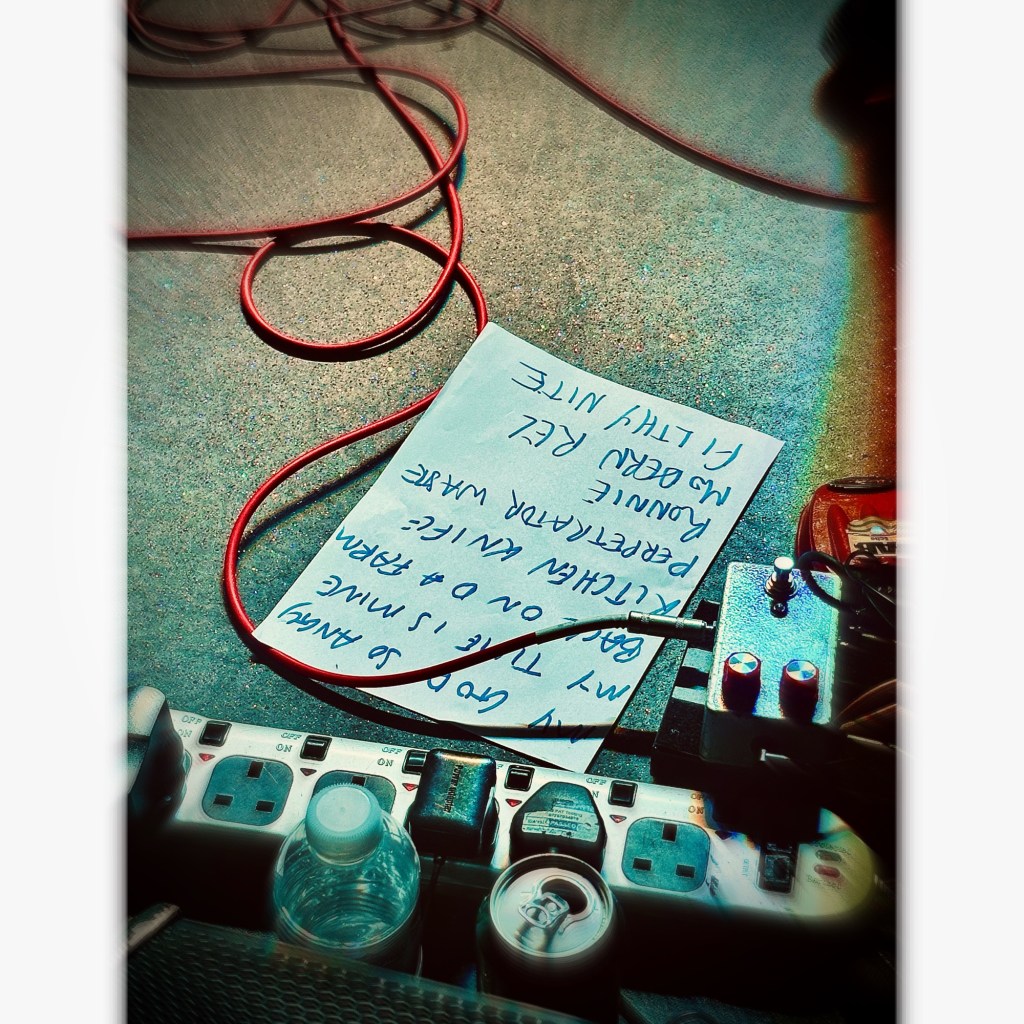 MY GOD SO ANGRY
MY TIME IS MINE
BACK ON DA FARM
KITCHEN KNIFE
PERPETRATOR
RONNIE
MODERN
FILTHY NITE
OFF
ON
OFF
ON
OFF
ON
OFF
OFF
PASSED